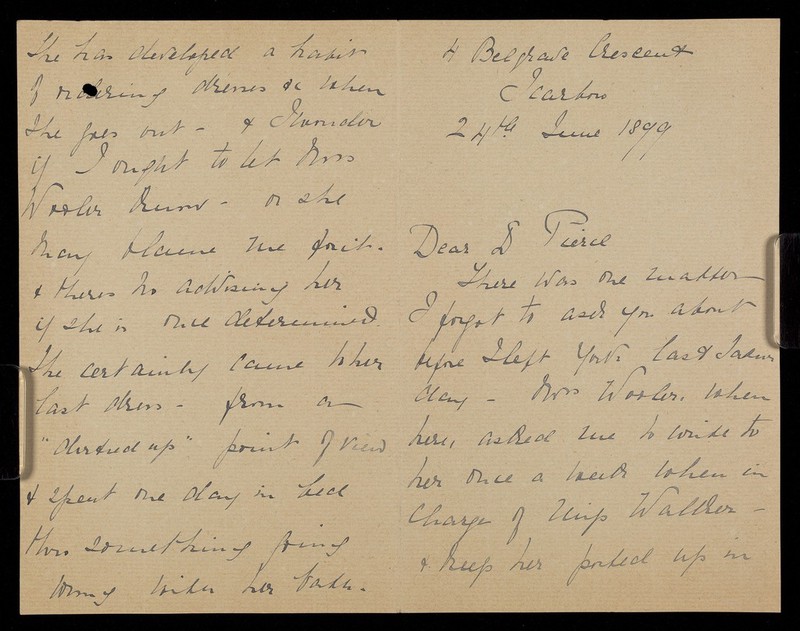 4 Belgrave Crescent
Scarboro
24th June 1899
Dear Dr Pierce
There was one matter
I forgot to ask you about
before I left York last Satur
day - Mrs Wooler, when
here, asked me to write to
her once a week when in
charge of Miss Walker -
& keep her posted up in
She has developed a habit
of ordering dresses &c when
she goes out - & I wonder
if I ought to let Mrs
Wooler know - or she
may blame me for it -
& theres no advising her
if she is once determined.
She certainly came to her
last dress - from a
" up" point of view
& spent one day in bed
thro something going
wrong with her